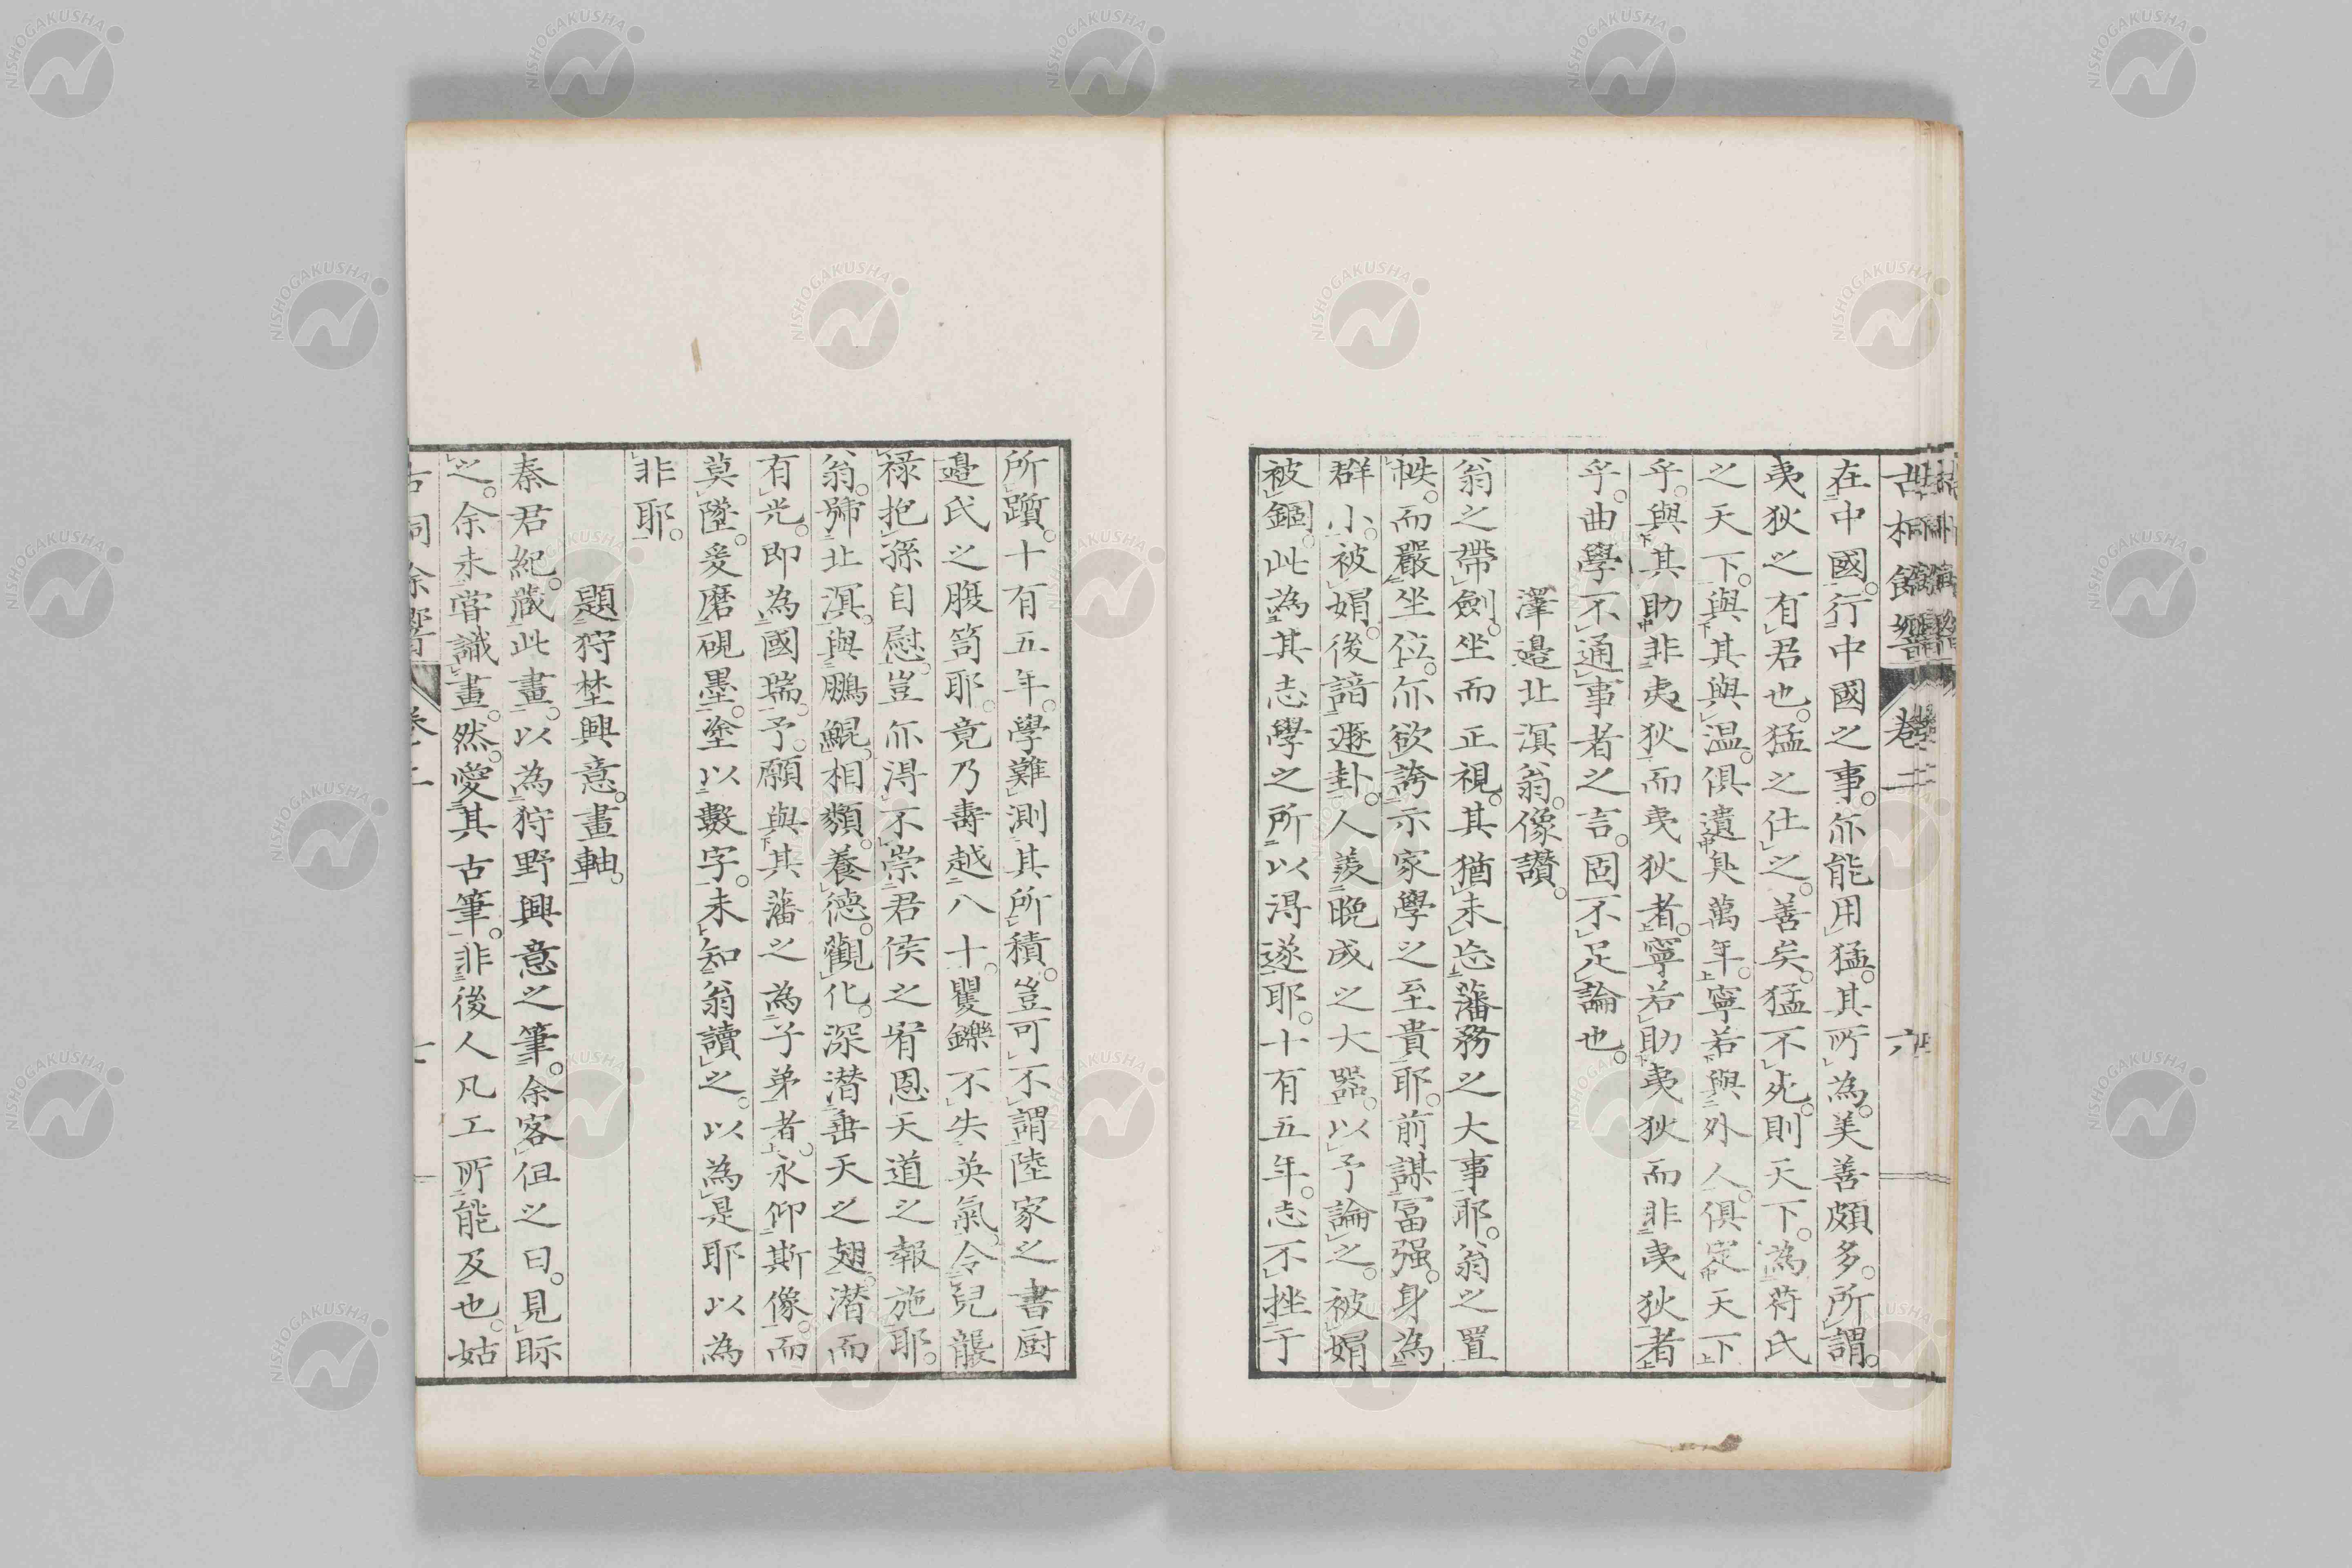 在中國。行中國之事。亦能用猛。其所為。美善頗多。所謂。
夷狄之有君也。猛之仕之。善矣。猛不死。則天下。為苻氏
之天下。與其與温。俱遺臭萬年。寧若與外人。俱定天下
乎。與其助非夷狄而夷狄者。寧若助夷狄而非夷狄者
乎。曲學不通事者之言。固不足論也。
澤邉北溟翁。像讃。
翁之帶劍。坐而正視。其猶未忘藩務之大事耶。翁之置
帙。而嚴坐位。亦欲誇示家學之至貴耶。前謀富强。身為
群小。被娟。後諳遯卦。人羨晩成之大器。以予論之。被娟
被錮。此為其志學之所以得遂耶。十有五年。志不挫于
所躓。十有五年。學難測其所積。豈可不謂陸家之書厨
邉氏之腹笥耶。竟乃壽越八十。矍鑠不失英氣。令兒襲
禄抱孫自慰。豈亦得不崇君侯之宥恩天道之報施耶。
翁。號北溟。與鵬鯤。相類。養德。觀化。深潜垂天之翅。潜而
有光。即為國瑞。予。願與其藩之為子弟者。永仰斯像。而
莫墜。爰磨硯墨。塗以數字。未知翁讀之。以為是耶以為
非耶。
題狩埜興意。畫軸。
秦君紀。藏此畫。以為狩野興意之筆。余客但之日。見眎
之。余未嘗識畫。然。愛其古筆。非後人凡工所能及也。姑
卷二